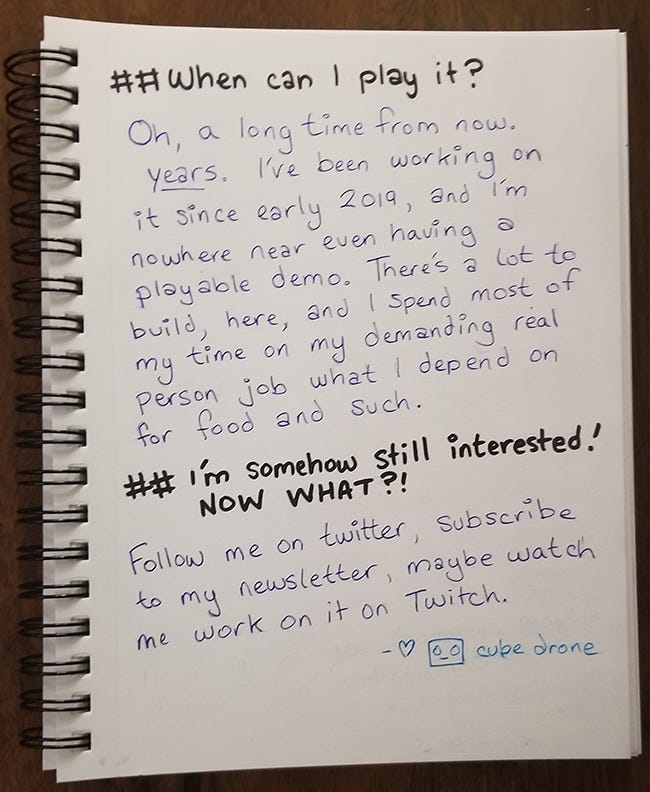 ## When can I play it?
Oh, a long time from now.
years. I've been working on
it since early 2019, and I'm
nowhere near even having a
playable demo. There's a lot to
build, here, and I spend most of
my time on my demanding real
person job what I depend on
for food and such.
## I'm somehow still interested!
NOW WHAT?!
Follow me on twitter, subscribe
to my newsletter, maybe watch
me work on it on Twitch.
-♡ cube drone